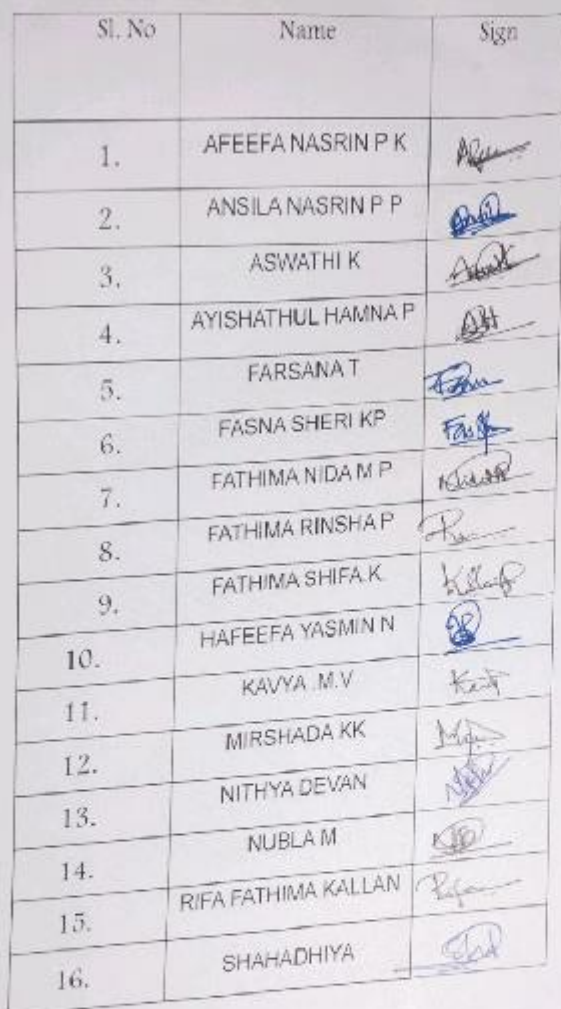 Sl. No Name Sign
1. AFEEFA NASRIN P K
2. ANSILA NASRIN P P
3. ASWATHI K
4. AYISHATHUL HAMNA P
5. FARSANA T
6. FASNA SHERI KP
7. FATHIMA NIDA M P
8. FATHIMA RINSHA P
9. FATHIMA SHIFA.K
10. HAFEEFA YASMIN N
11. KAVYA .M.V
12. MIRSHADA KK
13. NITHYA DEVAN
14. NUBLA M
15. RIFA FATHIMA KALLAN
16. SHAHADHIYA